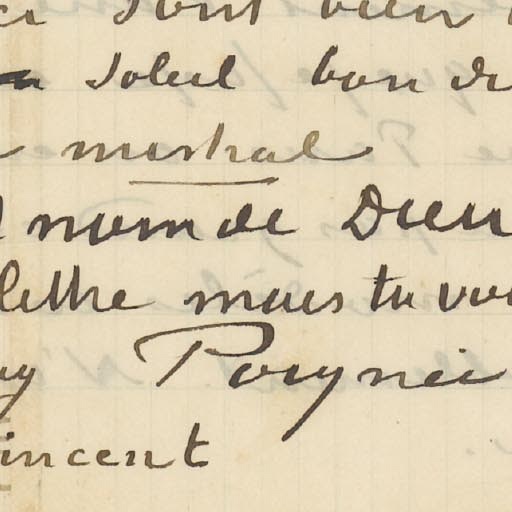 sont bien
soleil bon de
mistral
nom de Dieu
lettre mais tu voi
Poignée
incent